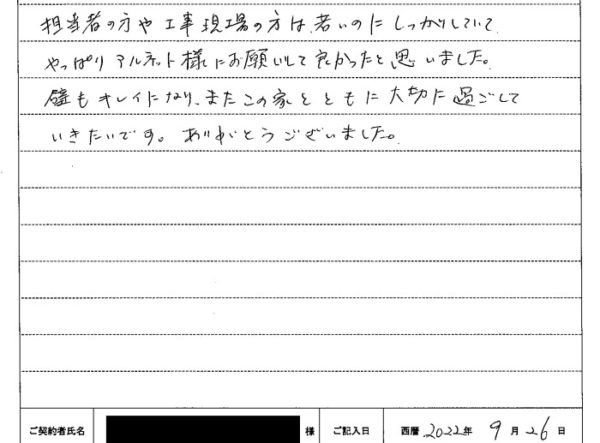 担当者の方や工事現場の方は、若いのにしっかりしていて
やっぱりアルネット様にお願いして良かったと思いました。
壁もキレイになり、またこの家とともに大切に過ごして
いきたいです。ありがとうございました。
ご契約者氏名 様 ご記入日 西暦 2022年 9月 26日